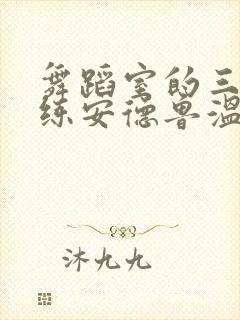 舞蹈室的三
练安德鲁温
沐九九